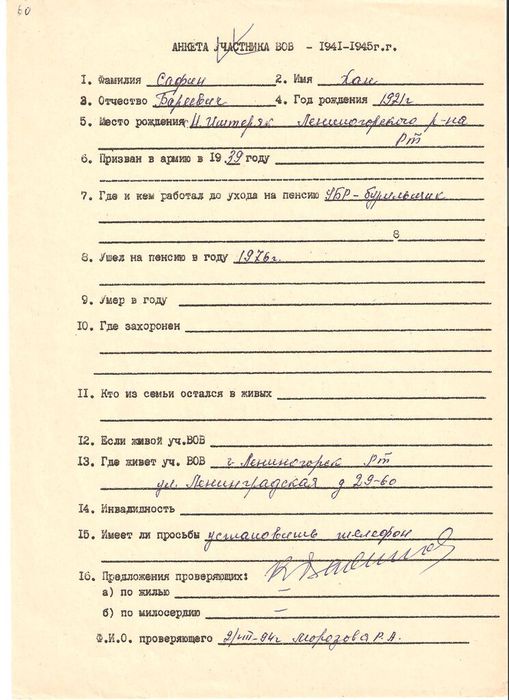 60
АНКЕТА УЧАСТНИКА ВОВ - 1941-1945г.г.
1. Фамилия Сафин 2. Имя Хан
3. Отчество Бареевич 4. Год рождения 1921г
5. Место рождения Н.Иштеряк Лениногорского р-на
РТ
6. Призван в армию в 1939 году
7. Где и кем работал до ухода на пенсию УБР-бурильщик
8
8. Ушел на пенсию в году 1976г.
9. Умер в году
10. Где захоронен
11. Кто из семьи остался в живых
12. Если живой уч.ВОВ
13. Где живет уч. ВОВ г. Лениногорск РТ
ул. Ленинградская д 29-60
14. Инвалидность
15. Имеет ли просьбы установить телефон
16. Предложения проверяющих:
а) по жилью —
б) по милосердию —
Ф.И.О. проверяющего 2/VIII-94г Морозова Р.А.